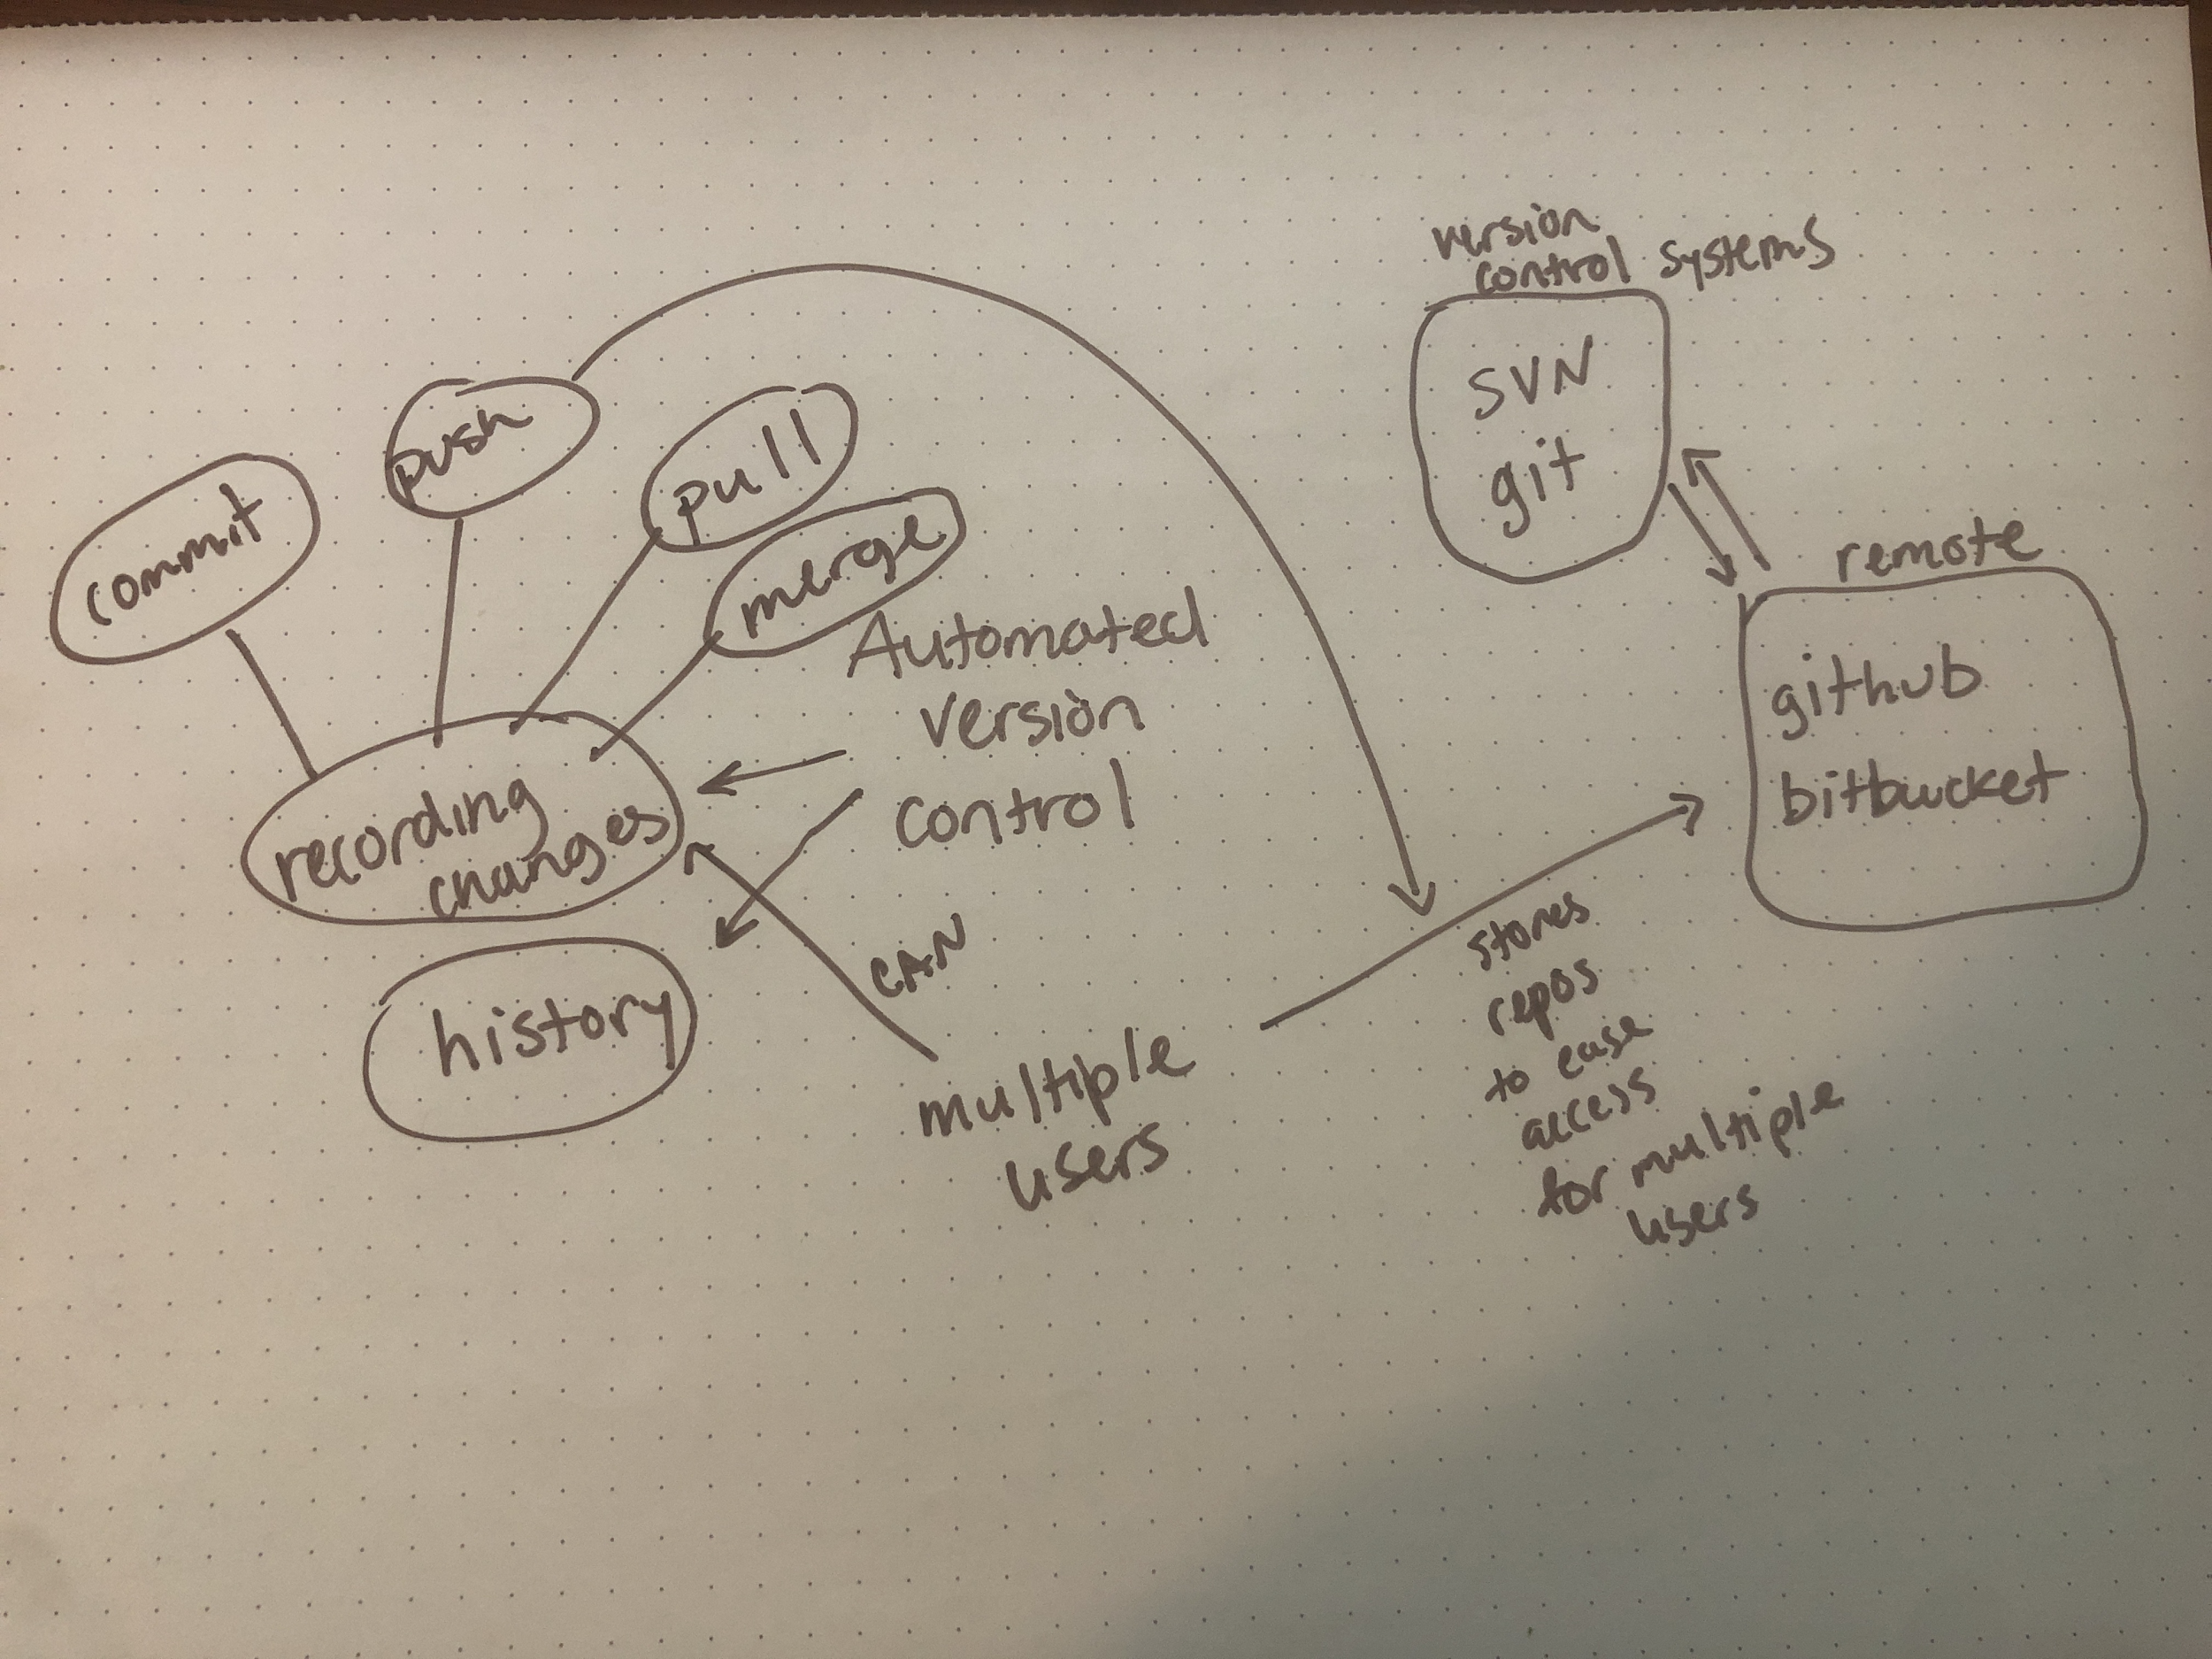 version
control systems
SVN
git
remote
github
bitbucket
push
pull
commit
merge
Automated
version
control
recording
changes
history
CAN
multiple
users
stores
repos
to ease
access
for multiple
users